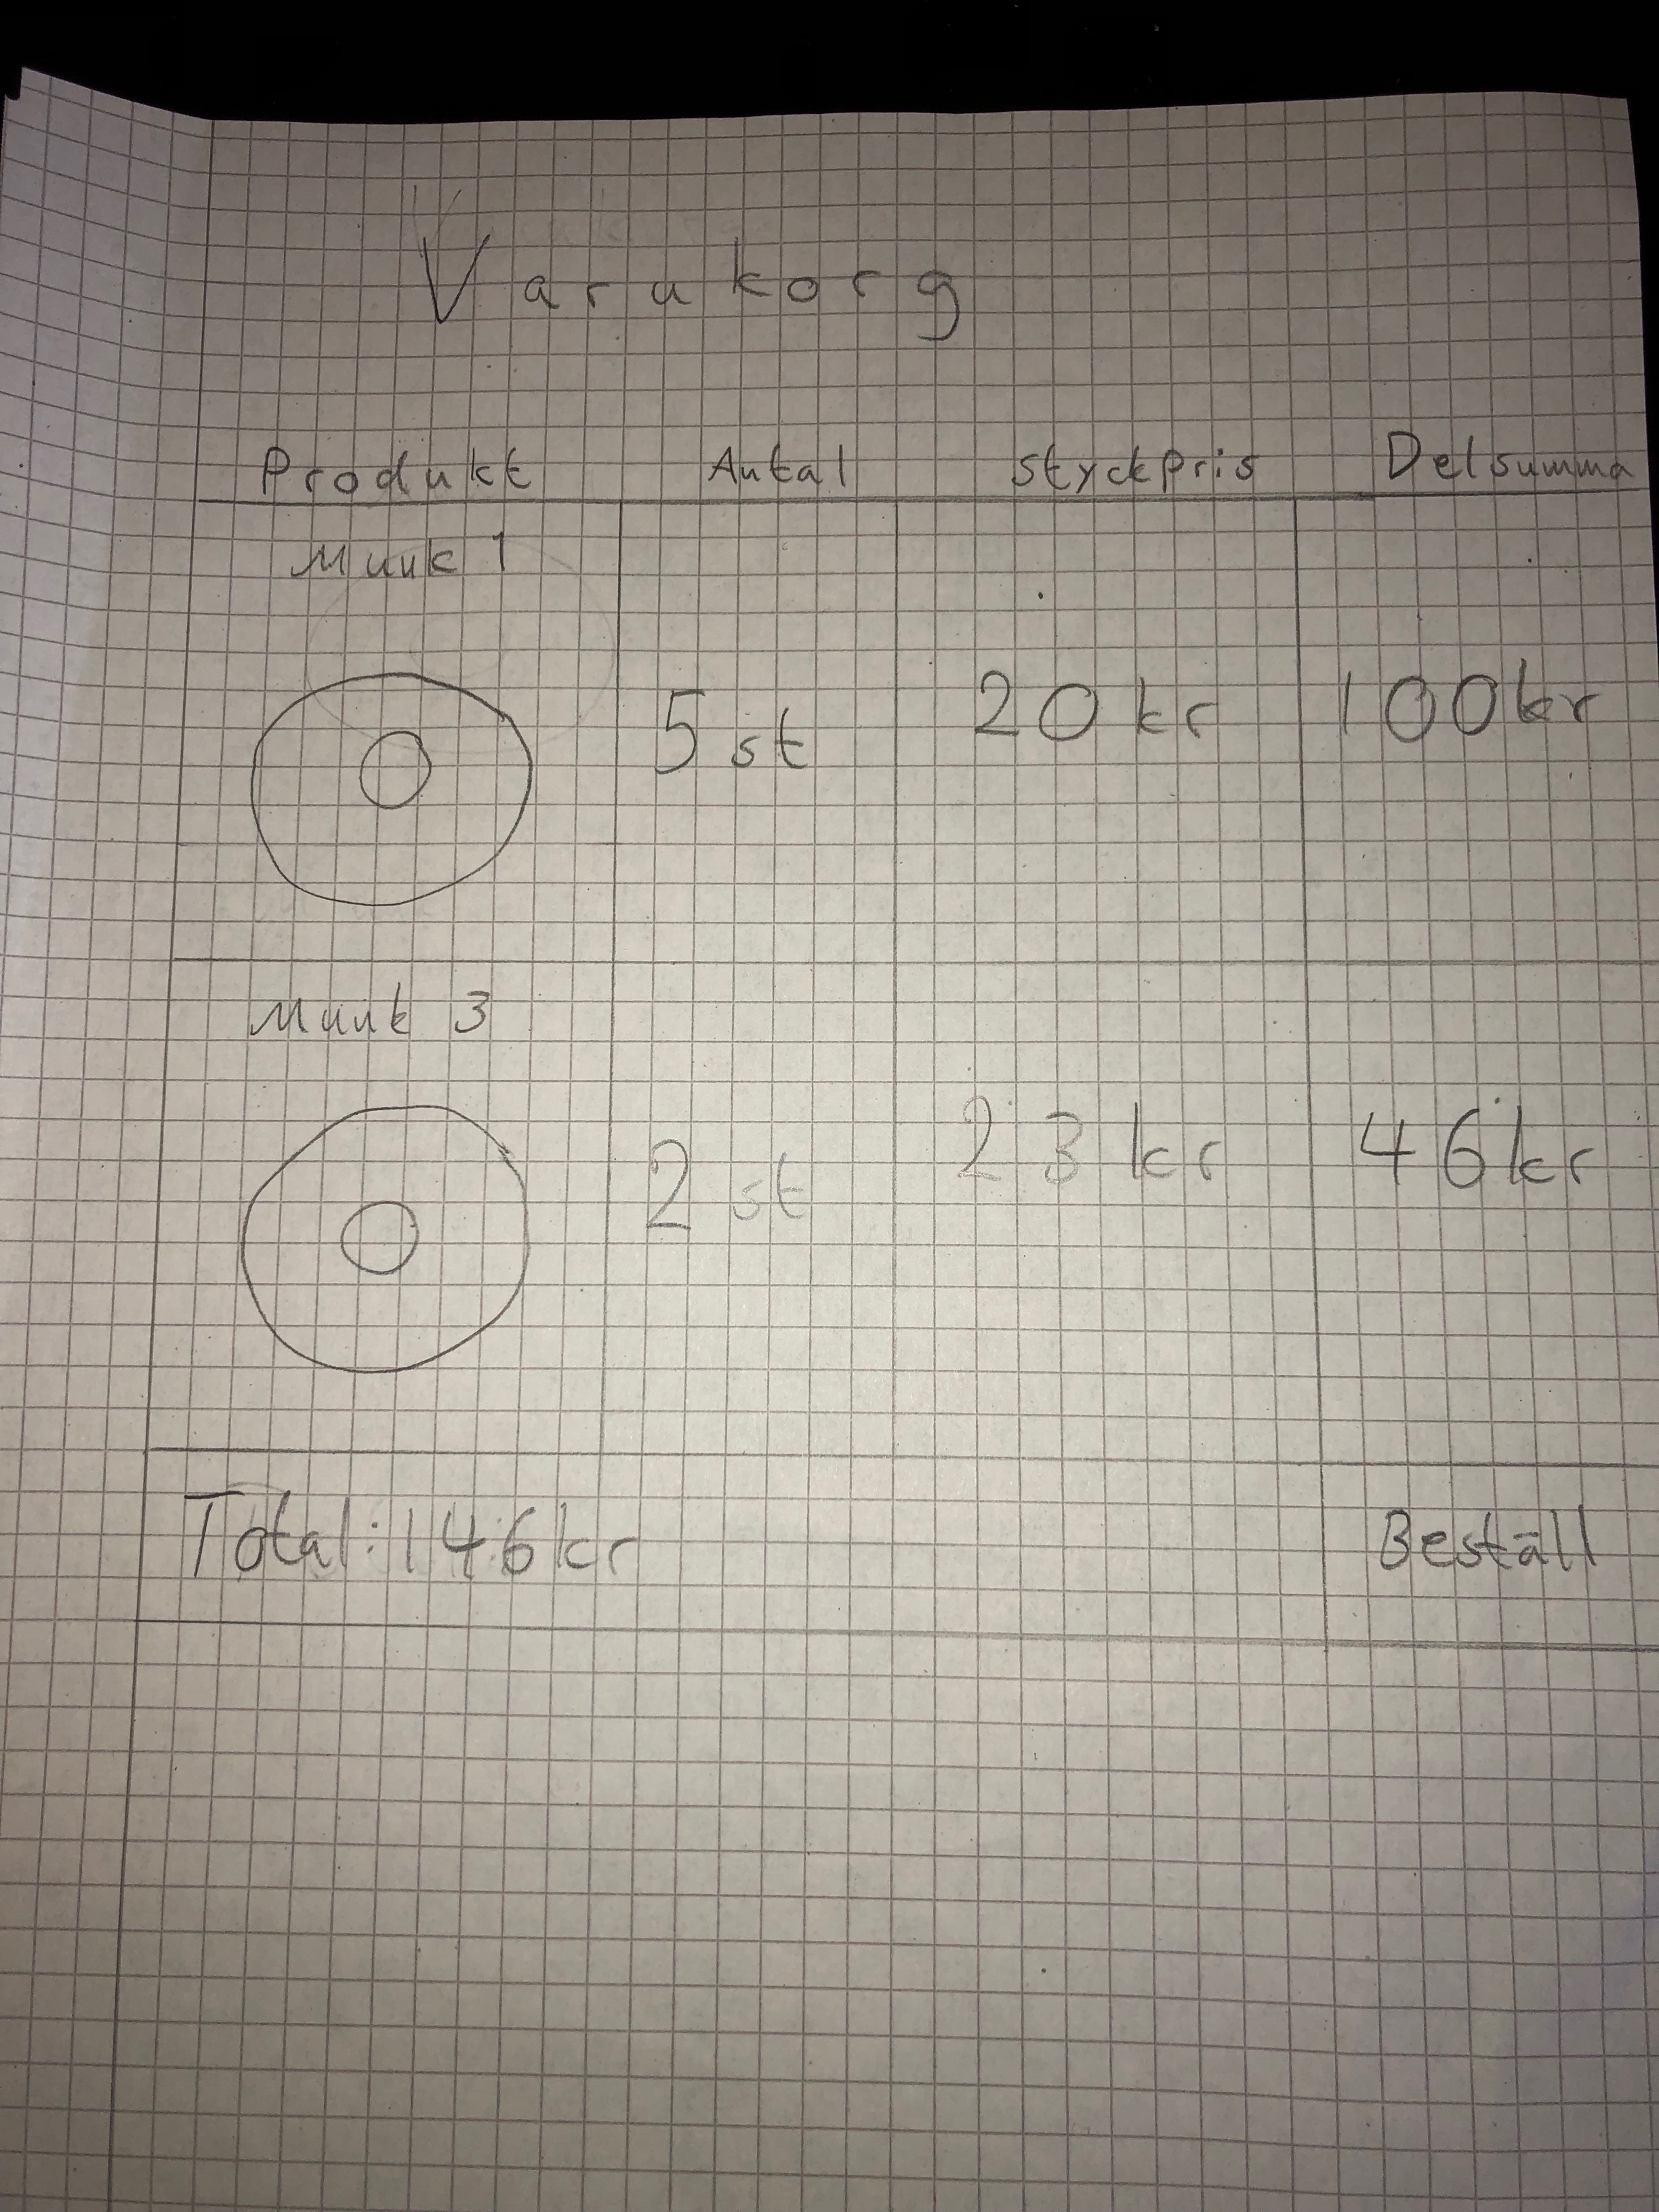 Varukorg
Produkt Antal Styckpris Delsumma
Munk 1
5 st 20 kr 100kr
Munk 3
2 st 23 kr 46kr
Total: 146kr Beställ